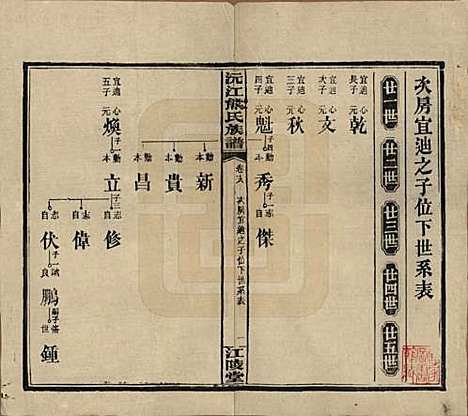 次房宜迪之子位下世系表
廿一世 廿二世 廿三世 廿四世 廿五世
宜迪長子 心元 乾
宜迪次子 心元 文
宜迪三子 心元 秋
宜迪四子 心元 魁 子四 勳本 秀 子一 志自 傑
沅江熊氏族譜 卷六 次房宜迪之子位下世系表 一 江陵堂
勳本 新
勳本 貴
勳本 昌
宜迪五子 心元 煥 子一 勳本 立 子三 志自 修
志自 偉
志自 伏 子一 誠良 鵬 嗣子 鍾